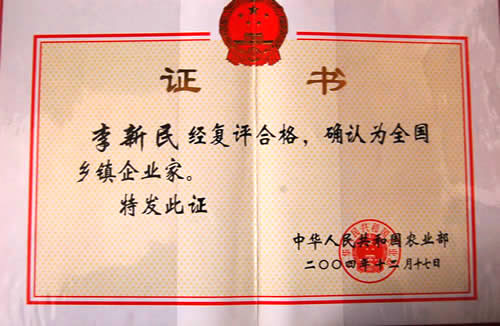 证书
李新民经复评合格，确认为全国
乡镇企业家。
特发此证
中华人民共和国农业部
二〇〇四年十二月十七日